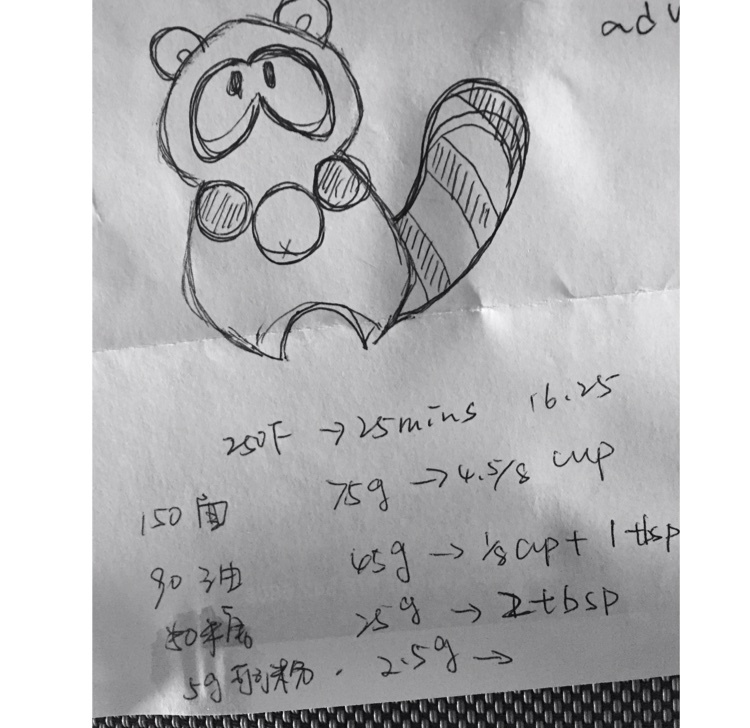 adv
250F → 25mins 16.25
150面 75g → 4.5/8 cup
90油 45g → 1/8 cup + 1 tbsp
50 25g → 2 tbsp
5g 粉 . 2.5g →